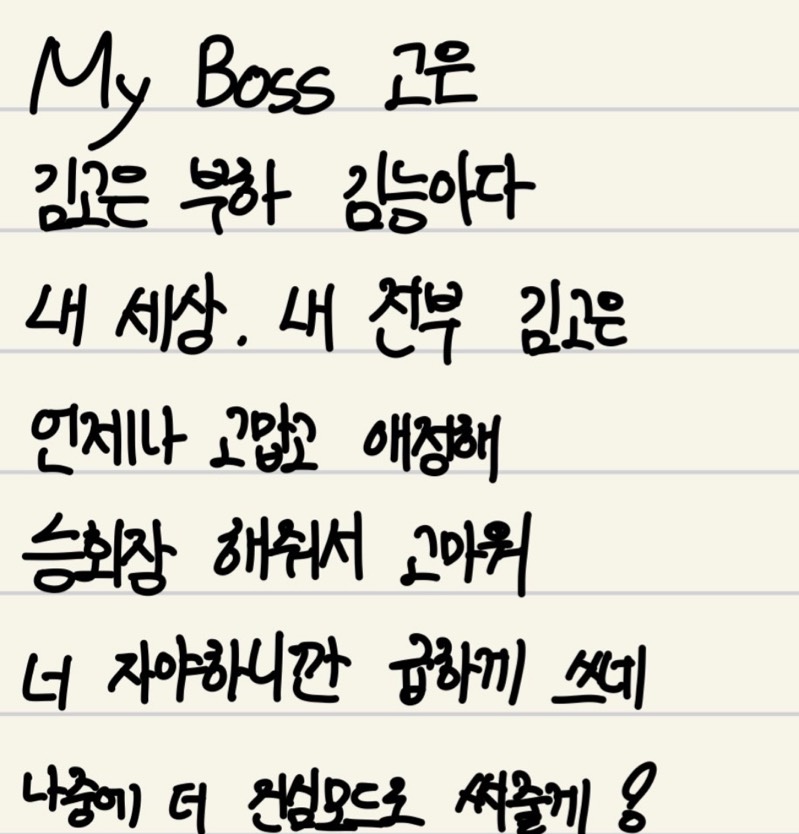 My Boss 고은
김고은 부하 김능아다
내 세상. 내 전부 김고은
언제나 고맙고 애정해
승회장 해줘서 고마워
너 자야하니깐 급하게 쓰네
나중에 더 진심모드로 써줄게!